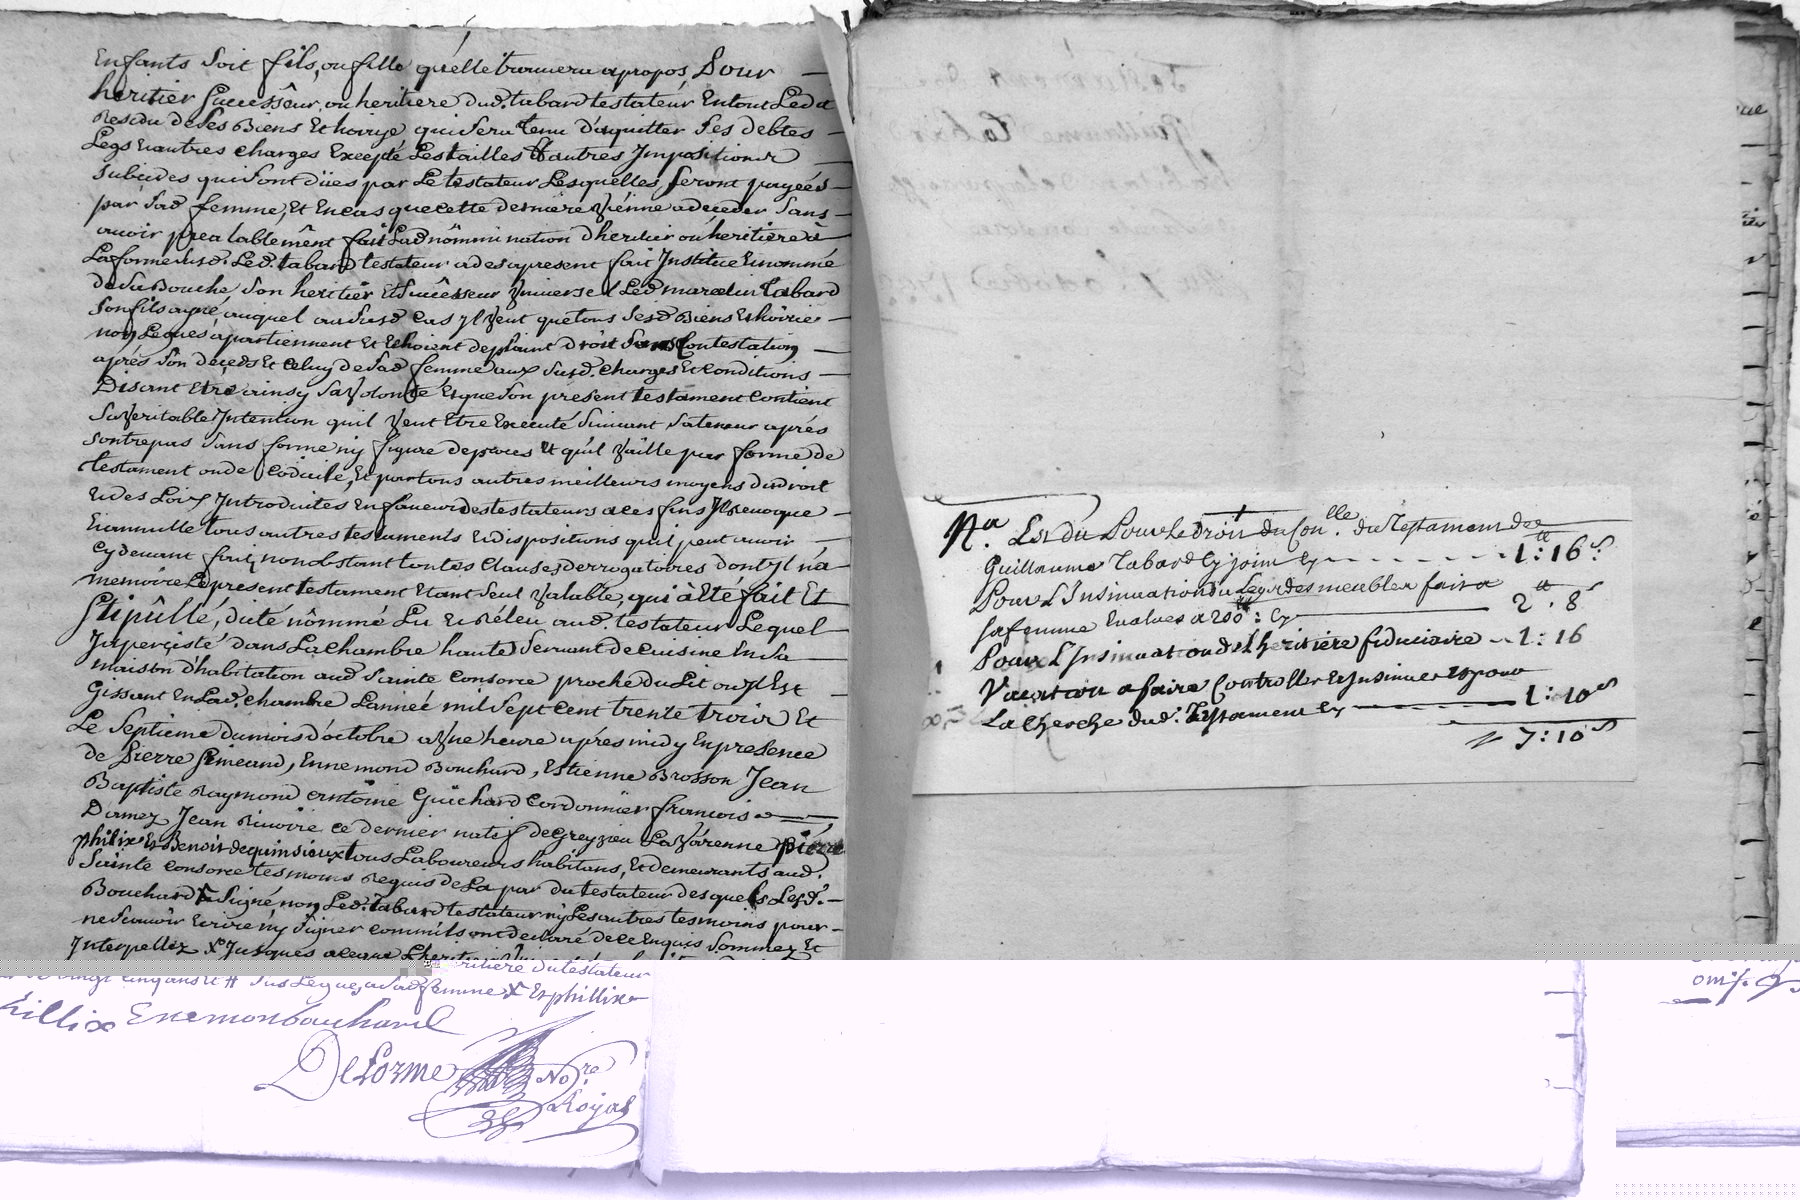 Enfants soit fils, ou fille quelle trouvera apropos, Pour
heritier successeur, ou heritiere dud. tabard testateur Entout Led.
Residu de ses Biens Et hoirye qui sera tenu d'aquitter ses debtes
Legs Et autres charges Excepté Les tailles Et autres Impositions
subcides qui sont düës par Le testateur Lesquelles seront payeés
par sad femme, Et En cas que cette derniere Vienne a deceder sans
avoir prealablement fait Lad nömmination d'heritier ou heritiere à
La forme susd. Led. tabard testateur a des apresent fait Institue Et nommé
de sa Bouche son heritier Et successeur Vniversel Led marcelin tabard
son fils ayné, auquel au susd cas yl Veut que tous sesd Biens Et hoirie
non Legués apartiennent Et Echoient de plaint droit sans Contestation
aprés son deceds Et celuy de sad femme aux susd. charges Et conditions
Disant Etre ainsy sa Volonté Et que son present testament contient
sa Veritable Intention quil Veut Etre Executé suivant sa teneur aprés
son trepas sans forme ny figure de proces Et quil Vaille par forme de
testament ou de Codicile, Et par tous autres meilleurs moyens du droit
Et des Loix Introduites En faveur des testateurs a ces fins Il revoque
Et annulle tous autres testaments Et dispositions quil peut avoir
cy devant fait, nonobstant toutes Clauses derrogatoires dont yl n'a
memoire Le present testament Etant seul Valable, qui à Eté fait Et
stipûllé, dicté nômmé Lu Et réleu aud. testateur Lequel
Jà perçisté dans La chambre haute servant de cuisine En sa
maison d'habitation aud sainte consorce proche du Lit ou yl Est
Gissant En Lad. chambre L'année mil sept cent trente trois Et
Le septieme du mois d'octobre a Vne heure aprés midy En presence
de Pierre Simeand, Ennemond Bouchard, Estienne Brosson Jean
Baptiste Raymond antoine Guichard Cordonnier francois
Damez Jean Rivoire ce dernier natif de Greyzieu La Varenne pierre
philix Et Benoit dequinsieux tous Laboureurs habitans, Et demeurants aud.
Sainte consorce tesmoins Requis de La par du testateur des quels Lesd.
Bouchard X signé non Led. tabard testateur ny Les autres tesmoins pour
ne sçavoir Ecrire ny signer comm'ils ont declaré de ce Enquis sommez Et
Interpellez X Jusques a ceque L'heritiere
heritiere du testateur
vingt cinq ans Et # sus Legue, a sad femme X Et phillix
hillix Enemonbouchard
Delorme No.re
Royal
N.a Est du Pour Le Droit du Con.lle du Testament de
Guillaume Tabard Cy joint Cy - - - - 1tt : 16s
Pour L'Insinuation du Legs des meubles fait a
sa femme Evalués a 200tt : Cy 2tt . 8s
Pour L'Insinuation de L'heritiere fiduciaire - 1 : 16
Vacation a faire Controller Et Insinuer Et pour
La cherche dud. Testament Cy 1 : 10s
7 : 10s
Testament de
Guillaume Tabard